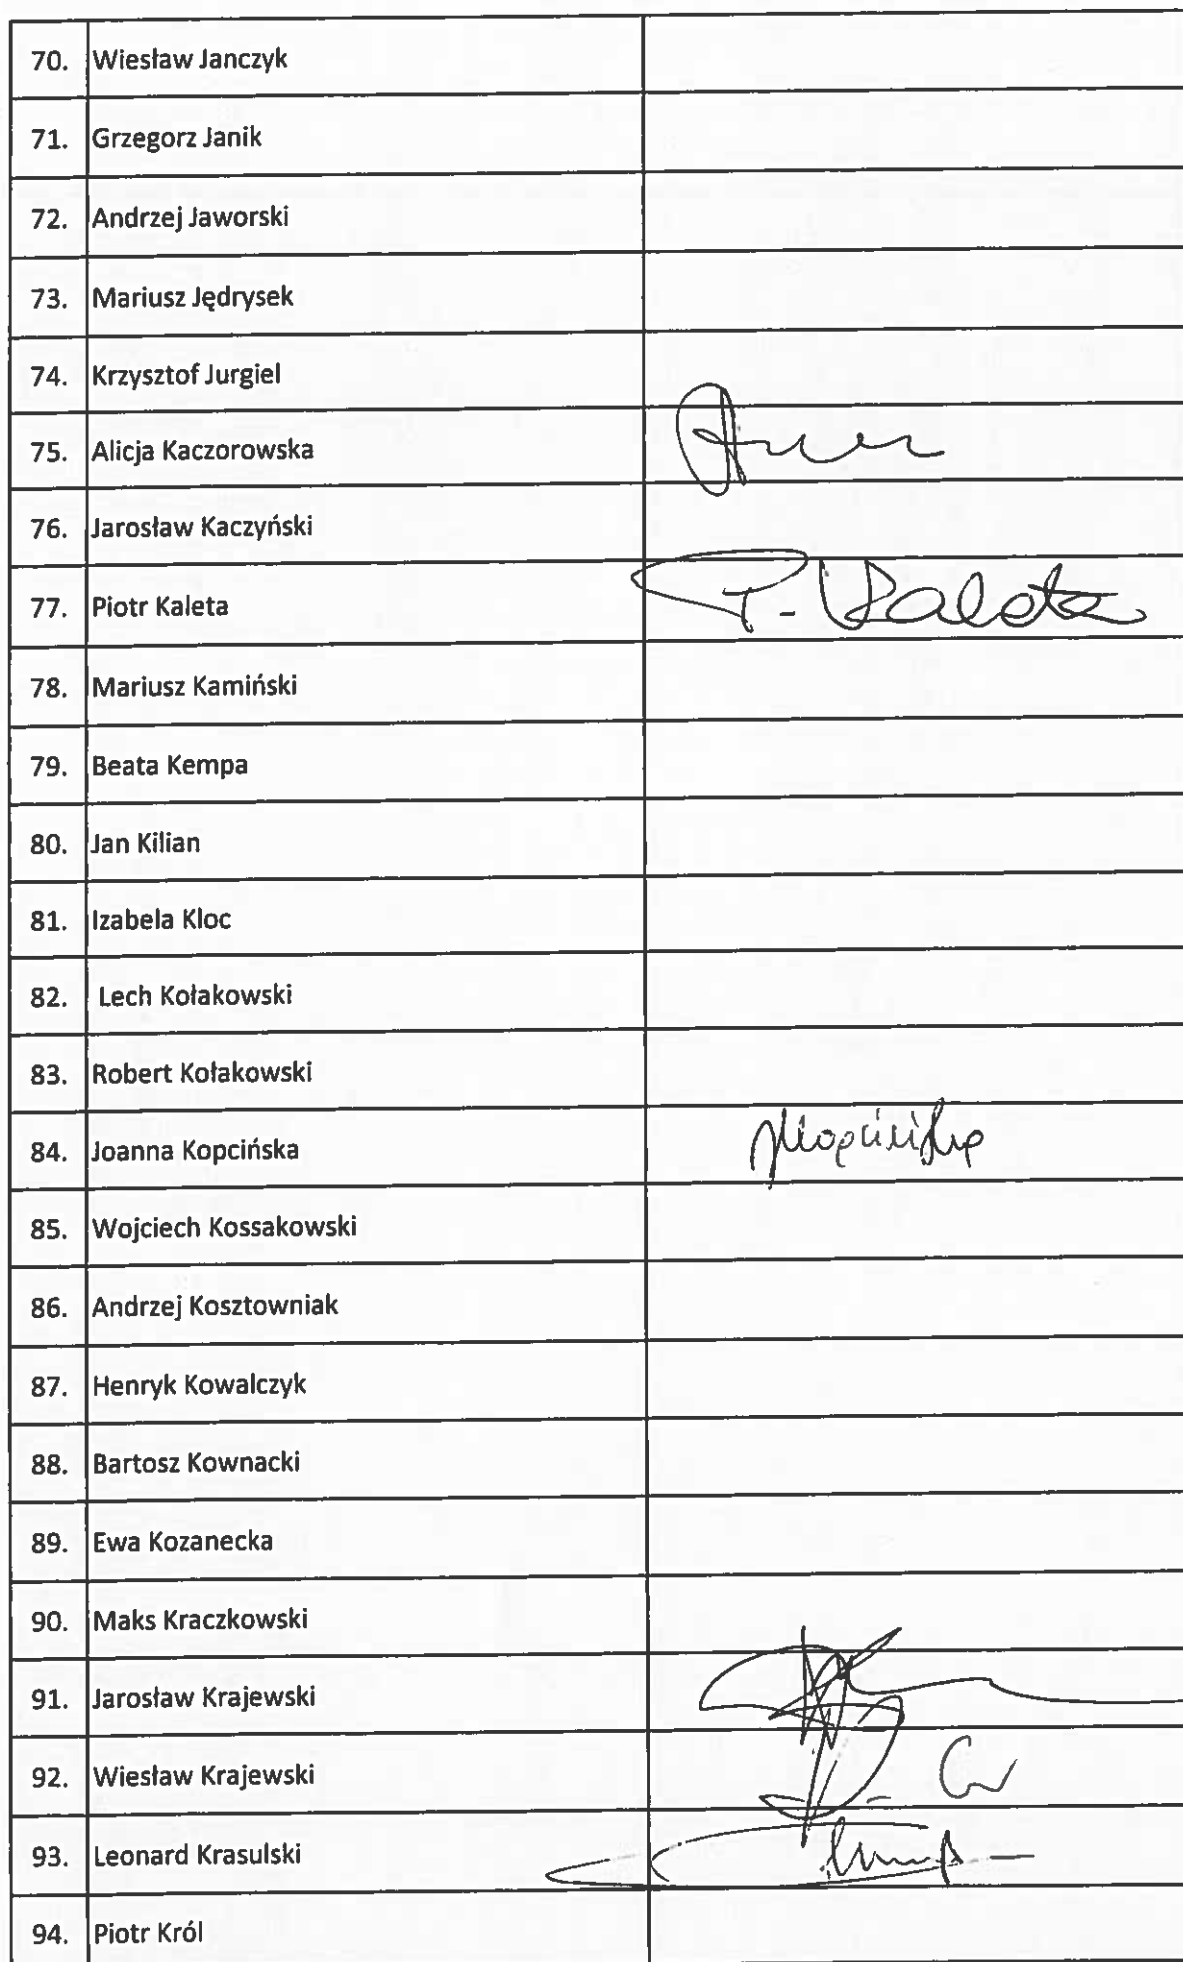 70. Wiesław Janczyk
71. Grzegorz Janik
72. Andrzej Jaworski
73. Mariusz Jędrysek
74. Krzysztof Jurgiel
75. Alicja Kaczorowska
76. Jarosław Kaczyński
77. Piotr Kaleta P. Kaleta
78. Mariusz Kamiński
79. Beata Kempa
80. Jan Kilian
81. Izabela Kloc
82. Lech Kołakowski
83. Robert Kołakowski
84. Joanna Kopcińska JKopcińska
85. Wojciech Kossakowski
86. Andrzej Kosztowniak
87. Henryk Kowalczyk
88. Bartosz Kownacki
89. Ewa Kozanecka
90. Maks Kraczkowski
91. Jarosław Krajewski
92. Wiesław Krajewski
93. Leonard Krasulski
94. Piotr Król